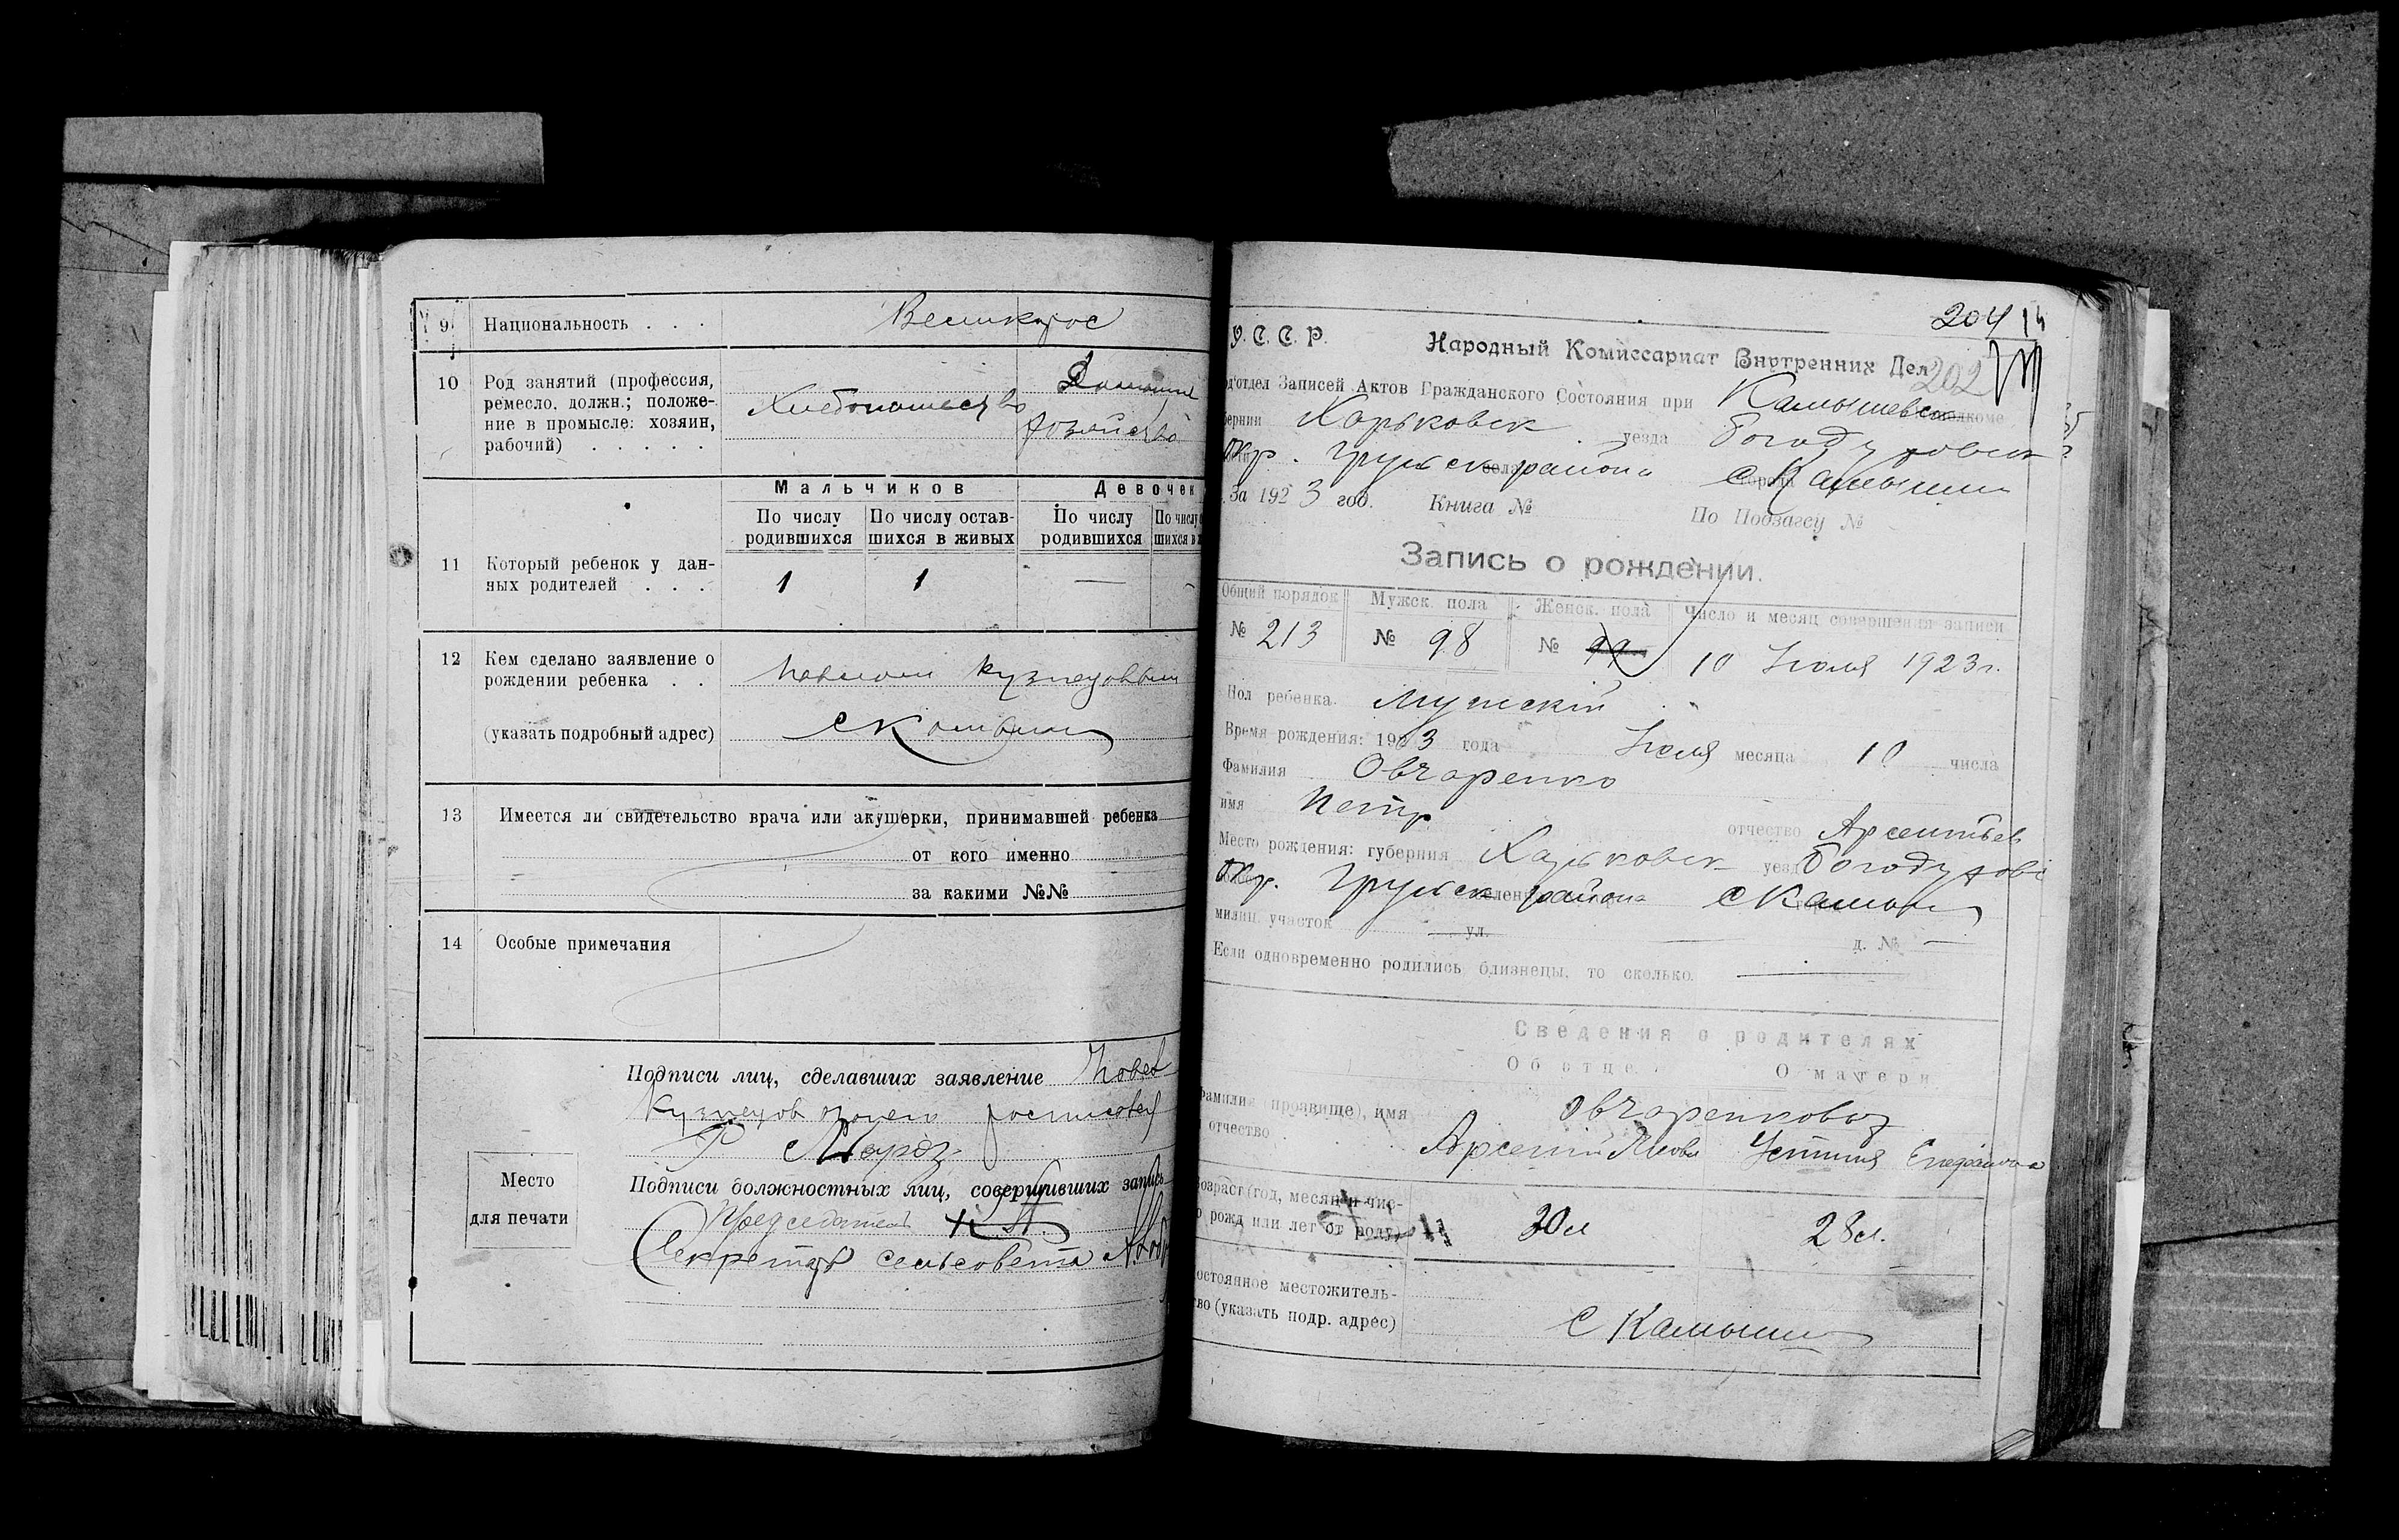 9 Национальность . . . Великорос
10 Род занятий (профессия,
ремесло, должн.; положе-
ние в промысле: хозяин,
рабочий) . . . . .
Хлебопашество
Домашнее
хозяйство
Мальчиков Девочек
По числу родившихся
По числу остав-
шихся в живых
По числу родившихся
11 Который ребенок у дан-
ных родителей . . .
1 1 —
12 Кем сделано заявление о
рождении ребенка . .
Павлом Кузнецовым
(указать подробный адрес)
с Камыши
13 Имеется ли свидетельство врача или акушерки, принимавшей ребенка
от кого именно
за какими №№
14 Особые примечания
Подписи лиц, сделавших заявление Павел
Кузнецов
Мороз
Место
для печати
Подписи должностных лиц, совершивших запись
Председатель
Секретарь сельсовета
204
202
У. С. С. Р. Народный Комиссариат Внутренних Дел
отдел Записей Актов Гражданского Состояния при Камышевск
Харьковск уезда Богодуховск
окр. Грунск района с Камыши
За 1923 год. Книга № По Подзагсу №
Запись о рождении.
Общий порядок Мужск. пола Женск. пола Число и месяц совершения записи
№ 213 № 98 № 99 10 Июля 1923 г.
Пол ребенка. Мужский
Время рождения: 1923 года Июля месяца 10 числа
Фамилия Овчаренко
имя Петр отчество Арсентьев
Место рождения: губерния Харьковск уезд Богодухові
окр. Грунск района с Камыши
милиц. участок ул. — д. № —
Если одновременно родились близнецы, то сколько. —
Сведения о родителях
Об отце. О матери
Фамилия (прозвище), имя
отчество
Овчаренковы
Арсений Яковл Устиния
Возраст (год, месяц и чис-
рожд или лет от роду)
30 л 28 л.
остоянное местожитель-
во (указать подр. адрес)
с Камыши